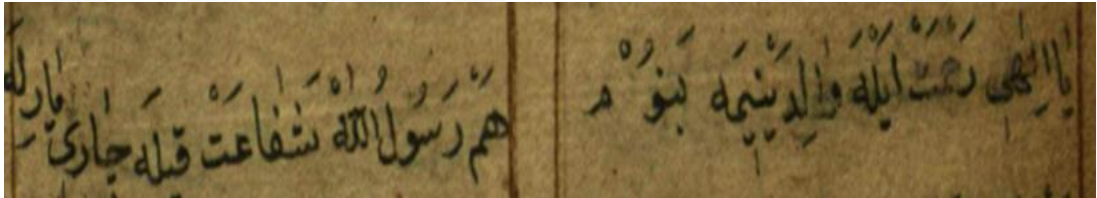 يَا اِلٰهِى رَحْمَتْ اَيْلَه وَالِدَيْنِيمَه بَنُوْم
هَمْ رَسُولُ اللّٰه شَفَاعَتْ قِيلَه جَارِى يَارِلَه